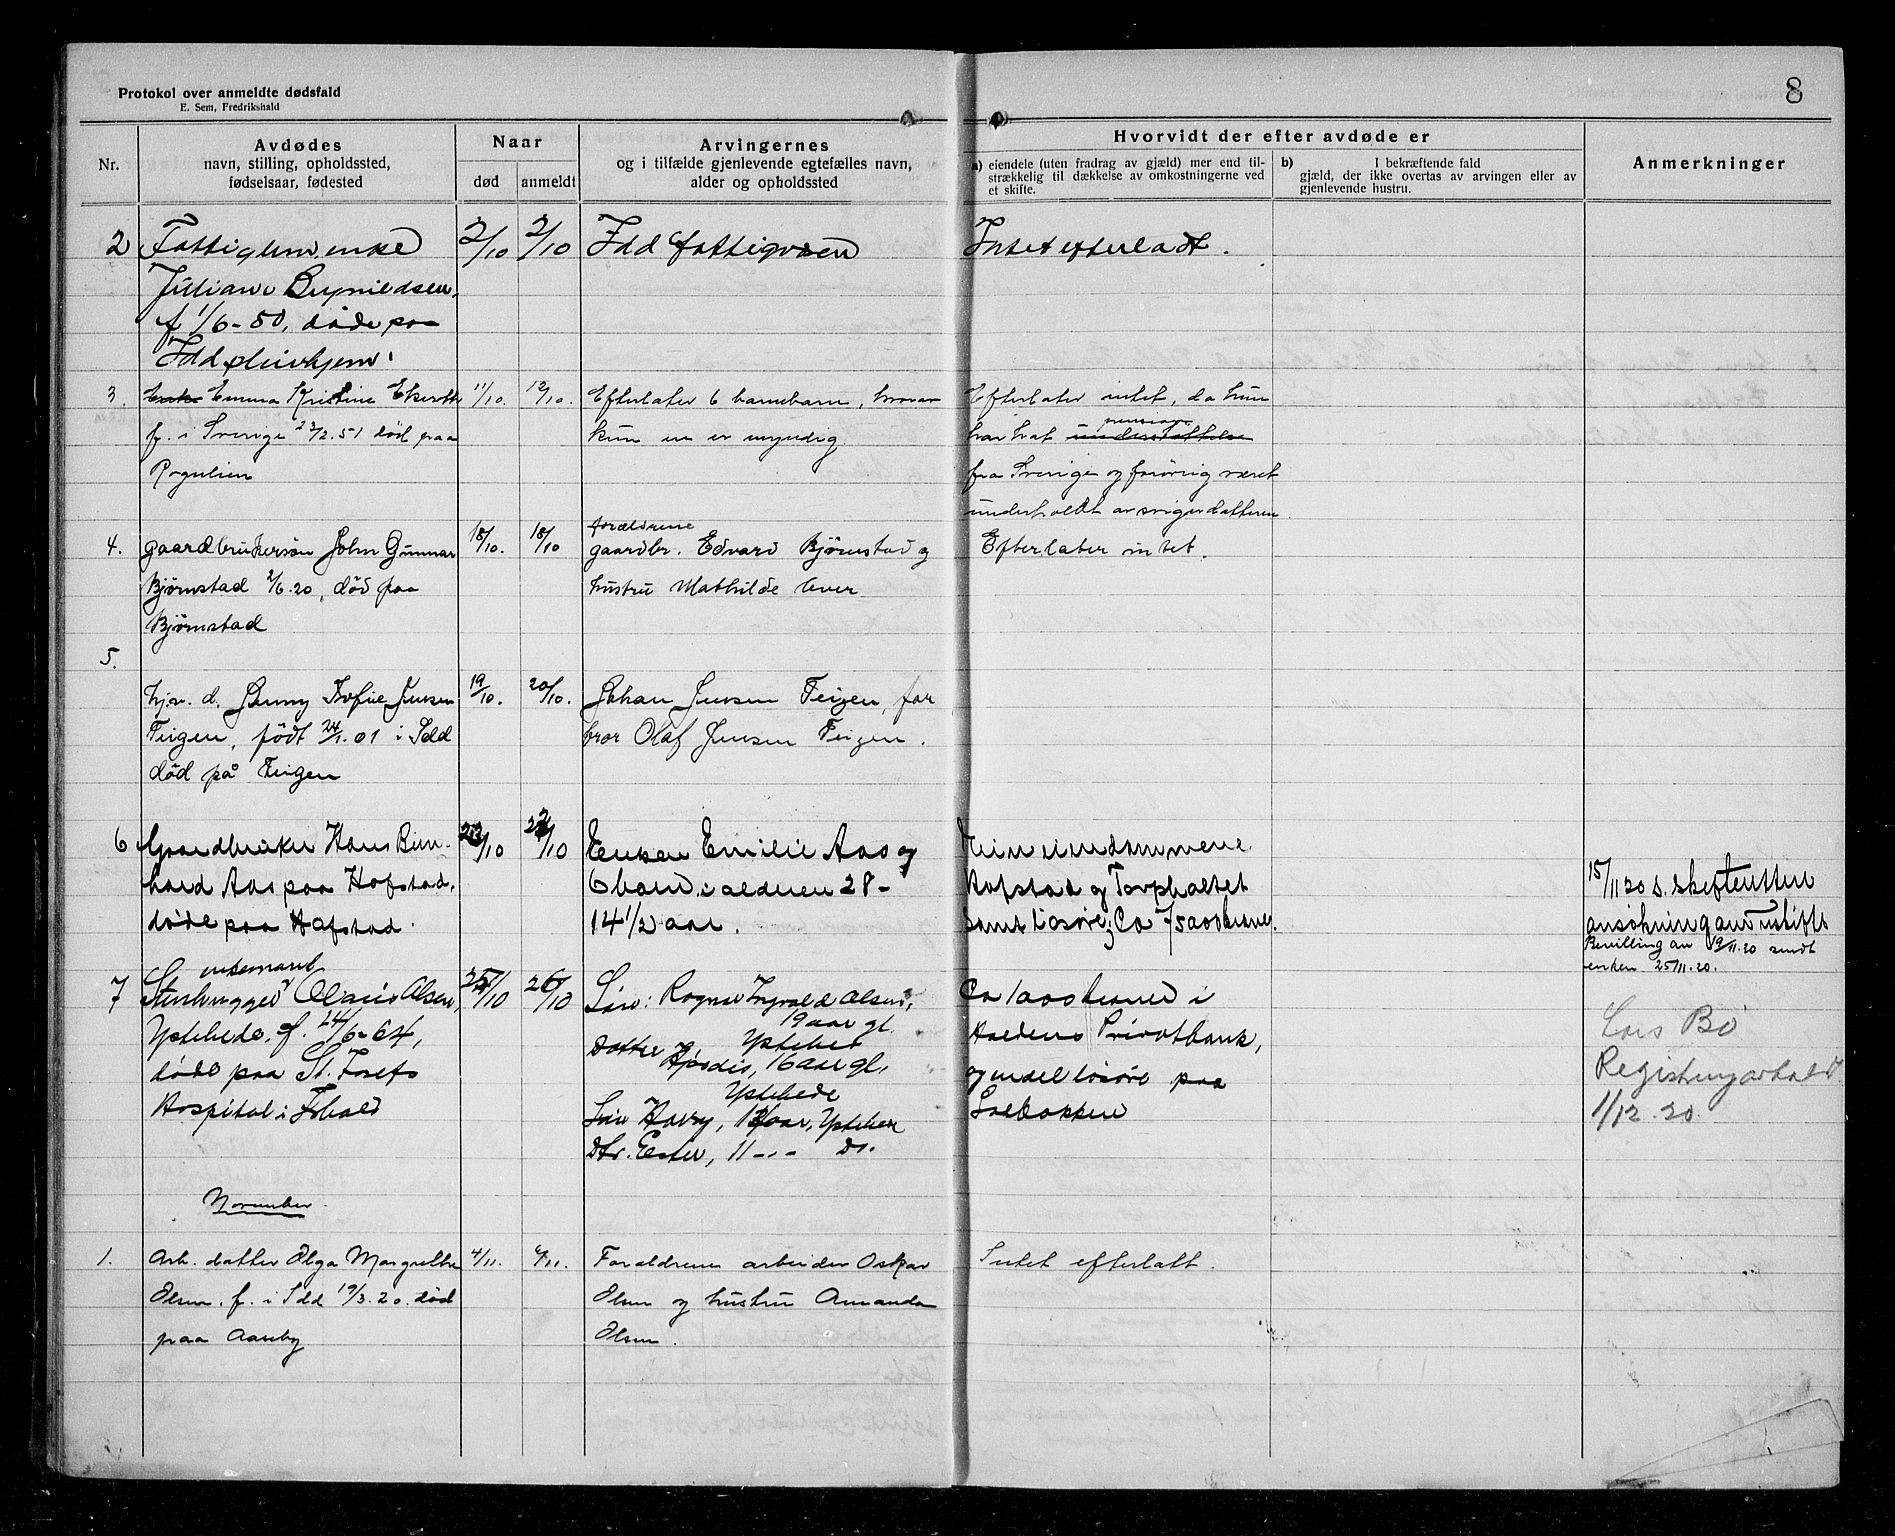 8
Protokol over anmeldte dødsfald
E. Sem, Fredrikshald
Nr.
Avdødes
navn, stilling, opholdssted,
fødselsaar, fødested
Naar
død
anmeldt
Arvingernes
og i tilfælde gjenlevende egtefælles navn,
alder og opholdssted
Hvorvidt der efter avdøde er
a) eiendele (uten fradrag av gjæld) mer end til-
strækkelig til dækkelse av omkostningerne ved
et skifte.
b) I bekræftende fald
gjæld, der ikke overtas av arvingen eller av
gjenlevende hustru.
Anmerkninger
2 Fattiglem, enke
Juliane Brynildsen,
f 1/6-50, døde paa
Idd pleiehjem.
2/10
2/10
Idd fattigvæsen
Intet efterladt.
3. Enke Emma Kristine Ekeroth
f. i Sverige 23/2.51 død paa
11/10.
12/10.
Efterlater 6 barnebarn, hvorav
kun en er umyndig
Efterlater intet, da hun
pension
har hat understøttelse
fra Sverige og forøvrig været
underholdt av svigerdatteren
4. gaardbrukersøn John Gunnar
Bjørnstad 2/6.20, død paa
Bjørnstad
18/10.
18/10
forældrene
gaardbr. Edvard Bjørnstad og
hustru Mathilde lever
Efterlater intet.
5.
hjv. d. Jenny Sofie Jensen
Teigen, født 24/1.01 i Idd
død på Teigen
19/10.
20/10.
Johan Jensen Teigen, far
bror Olaf Jensen Teigen.
6 Gaardbruker Hans Bern-
hard Aas paa Hofstad,
døde paa Hofstad.
/10
/10
Enken Emilie Aas og
6 barn i alderen 28-
14 1/2 aar.
Eiendommene
Hofstad og Torpholtet
samt løsøre; Ca 75000 kroner.
15/11 20 s. skifteretten
ansøkning om uskifte
Bevilling av 19/11.20 sendt
enken 25/11.20.
7 enkemand
Stenhugger Olaus Olsen,
Ystehede, f. 24/6-64,
døde paa St. Josefs
Hospital i Fr.hald
25/10
26/10
Søn: Ragnar Ingvald Olsen,
19 aar gl.
Datter Hjørdis, Ystehed
16 aar gl.
Ystehede
Søn Harry, aar, Ystehed
Dtr. Ester, 11 -"- Do.
Ca 1000 kroner i
Haldens Privatbank,
og endel løsøre paa
Solbakken
Lars Bø
Registring avholdt
1/12.20.
November
1. Arb. datter Olga Margrethe
Olsen. f. i Idd 19/3.20. død
paa Aaseby
4/11.
6/11.
Forældrene arbeider Oskar
Olsen og hustru Amanda
Olsen.
Intet efterlatt.